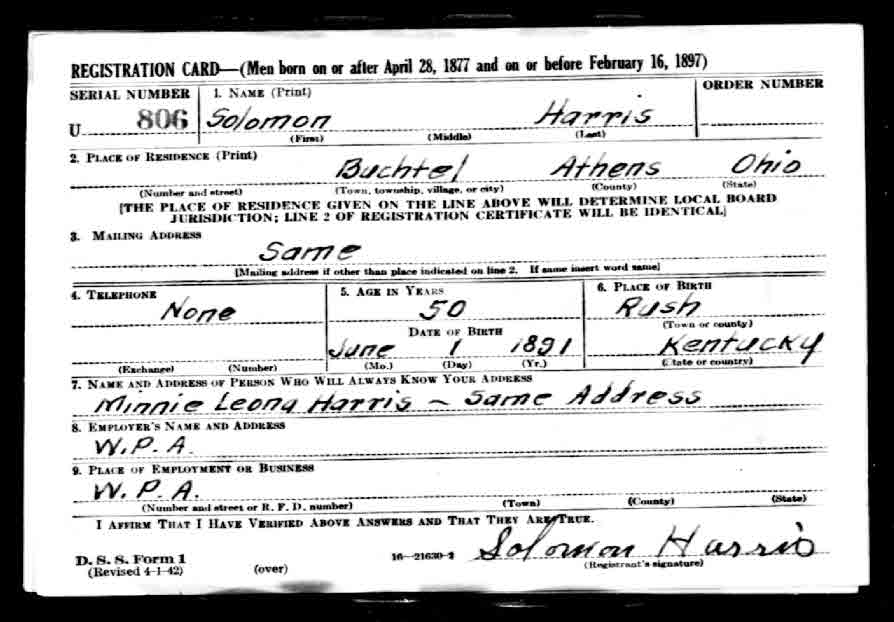 REGISTRATION CARD—(Men born on or after April 28, 1877 and on or before February 16, 1897)
SERIAL NUMBER 1. NAME (Print) ORDER NUMBER
U 806 Solomon Harris
(First) (Middle) (Last)
2. PLACE OF RESIDENCE (Print)
Buchtel Athens Ohio
(Number and street) (Town, township, village, or city) (County) (State)
[THE PLACE OF RESIDENCE GIVEN ON THE LINE ABOVE WILL DETERMINE LOCAL BOARD
JURISDICTION; LINE 2 OF REGISTRATION CERTIFICATE WILL BE IDENTICAL]
3. MAILING ADDRESS
Same
[Mailing address if other than place indicated on line 2. If same insert word same]
4. TELEPHONE 5. AGE IN YEARS 6. PLACE OF BIRTH
None 50 Rush
(Town or county)
DATE OF BIRTH
June 1 1891 Kentucky
(Exchange) (Number) (Mo.) (Day) (Yr.) (State or country)
7. NAME AND ADDRESS OF PERSON WHO WILL ALWAYS KNOW YOUR ADDRESS
Minnie Leona Harris - Same Address
8. EMPLOYER'S NAME AND ADDRESS
W.P.A.
9. PLACE OF EMPLOYMENT OR BUSINESS
W.P.A.
(Number and street or R. F. D. number) (Town) (County) (State)
I AFFIRM THAT I HAVE VERIFIED ABOVE ANSWERS AND THAT THEY ARE TRUE.
D. S. S. Form 1 16—21630-2 Solomon Harris
(Revised 4-1-42) (over) (Registrant's signature)